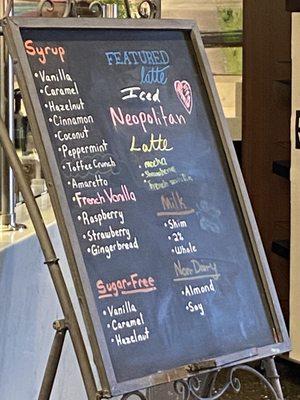 Syrup
• Vanilla
• Caramel
• Hazelnut
• Cinnamon
• Coconut
• Peppermint
• Toffee Crunch
• Amaretto
• French Vanilla
• Raspberry
• Strawberry
• Gingerbread
Sugar-Free
• Vanilla
• Caramel
• Hazelnut
FEATURED
latte
Iced
Neopolitan
Latte
• mocha
• Strawberry
• french vanilla
Milk
• Skim
• 2%
• Whole
Non-Dairy
• Almond
• Soy